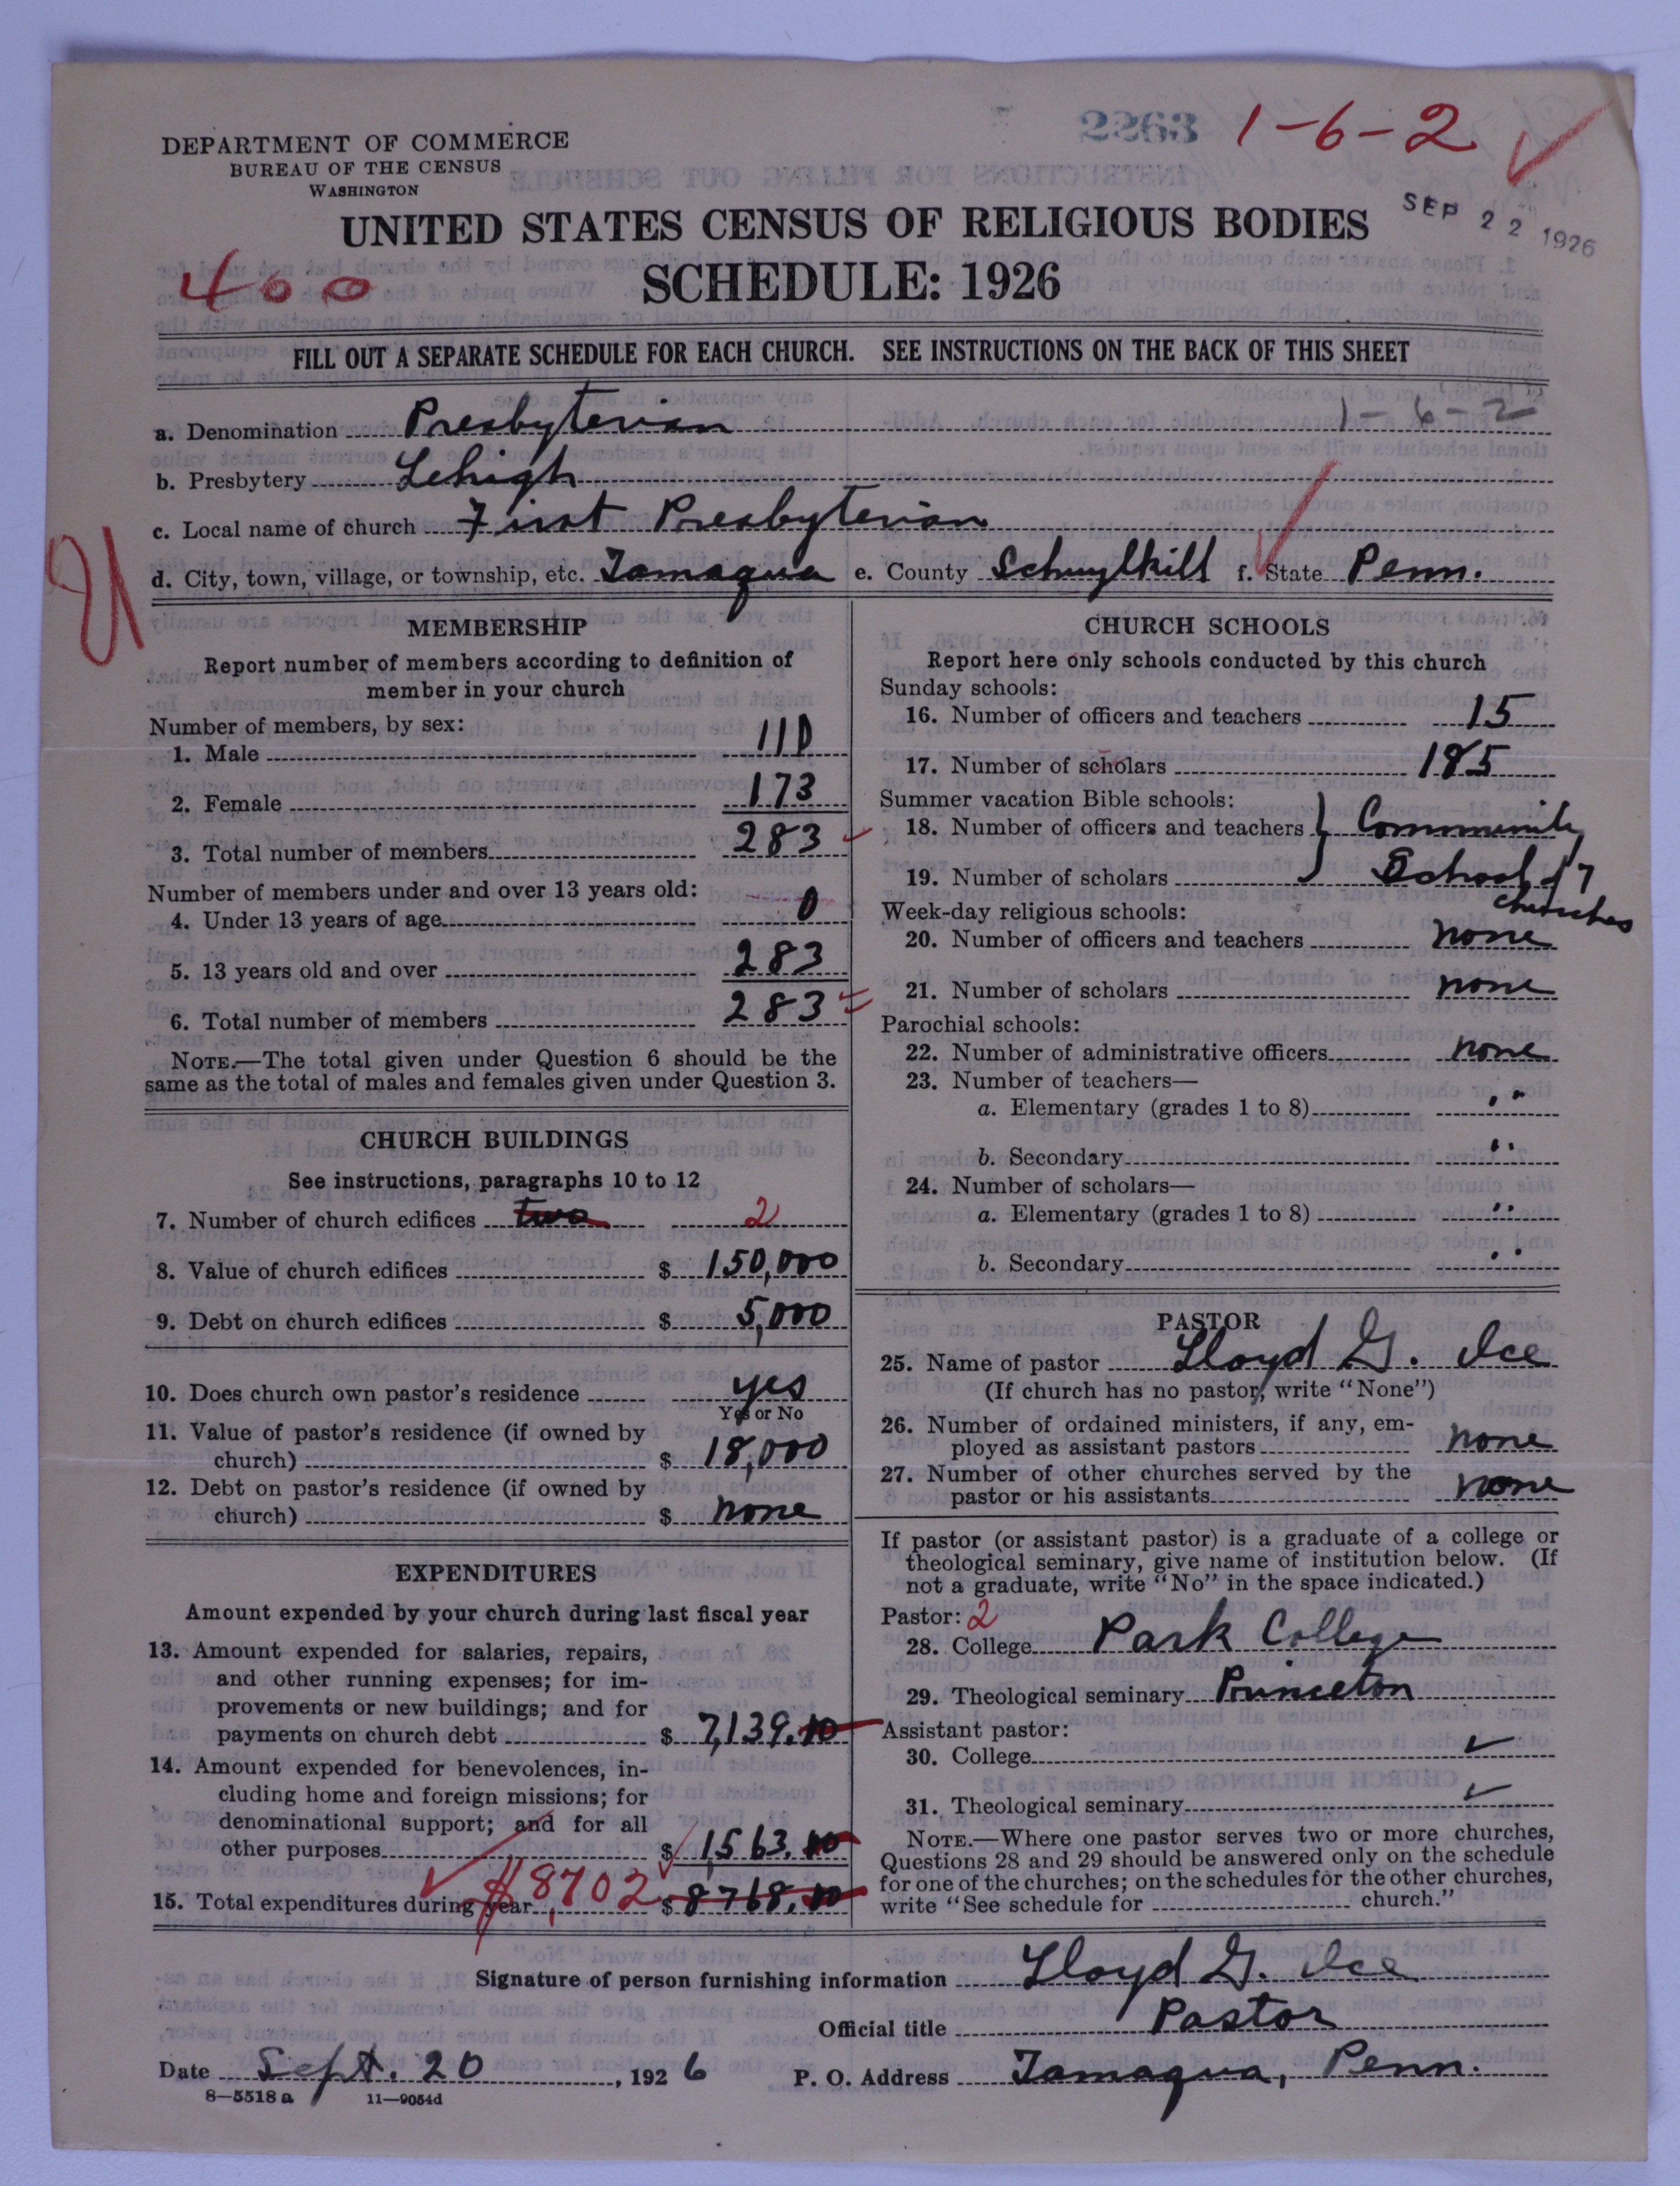 2263 1-6-2
DEPARTMENT OF COMMERCE
BUREAU OF THE CENSUS
WASHINGTON
SEP 22 1926
UNITED STATES CENSUS OF RELIGIOUS BODIES
400
SCHEDULE: 1926
FILL OUT A SEPARATE SCHEDULE FOR EACH CHURCH. SEE INSTRUCTIONS ON THE BACK OF THIS SHEET
a. Denomination Presbyterian 1-6-2
b. Presbytery Lehigh
c. Local name of church First Presbyterian
d. City, town, village, or township, etc. Tamaqua e. County Schuylkill f. State Penn.
MEMBERSHIP
Report number of members according to definition of
member in your church
Number of members, by sex:
1. Male 110
2. Female 173
3. Total number of members 283
Number of members under and over 13 years old:
4. Under 13 years of age 0
5. 13 years old and over 283
6. Total number of members 283
NOTE.—The total given under Question 6 should be the
same as the total of males and females given under Question 3.
CHURCH BUILDINGS
See instructions, paragraphs 10 to 12
7. Number of church edifices two 2
8. Value of church edifices $ 150,000
9. Debt on church edifices $ 5,000
10. Does church own pastor's residence yes
Yes or No
11. Value of pastor's residence (if owned by
church) $ 18,000
12. Debt on pastor's residence (if owned by
church) $ none
EXPENDITURES
Amount expended by your church during last fiscal year
13. Amount expended for salaries, repairs,
and other running expenses; for im-
provements or new buildings; and for
payments on church debt $ 7,139.10
14. Amount expended for benevolences, in-
cluding home and foreign missions; for
denominational support; and for all
other purposes $ 1,563.
15. Total expenditures during year $8702 $ 8768.
CHURCH SCHOOLS
Report here only schools conducted by this church
Sunday schools:
16. Number of officers and teachers 15
17. Number of scholars 185
Summer vacation Bible schools:
18. Number of officers and teachers } Community
19. Number of scholars School of 7
churches
Week-day religious schools:
20. Number of officers and teachers none
21. Number of scholars none
Parochial schools:
22. Number of administrative officers none
23. Number of teachers—
a. Elementary (grades 1 to 8) "
b. Secondary "
24. Number of scholars—
a. Elementary (grades 1 to 8) "
b. Secondary "
PASTOR
25. Name of pastor Lloyd G. Ice
(If church has no pastor, write "None")
26. Number of ordained ministers, if any, em-
ployed as assistant pastors none
27. Number of other churches served by the
pastor or his assistants none
If pastor (or assistant pastor) is a graduate of a college or
theological seminary, give name of institution below. (If
not a graduate, write "No" in the space indicated.)
Pastor: 2
28. College Park College
29. Theological seminary Princeton
Assistant pastor:
30. College ✓
31. Theological seminary ✓
NOTE.—Where one pastor serves two or more churches,
Questions 28 and 29 should be answered only on the schedule
for one of the churches; on the schedules for the other churches,
write "See schedule for church."
Signature of person furnishing information Lloyd G. Ice
Official title Pastor
Date Sept. 20, 1926 P. O. Address Tamaqua, Penn.
8—5518 a 11—9054d